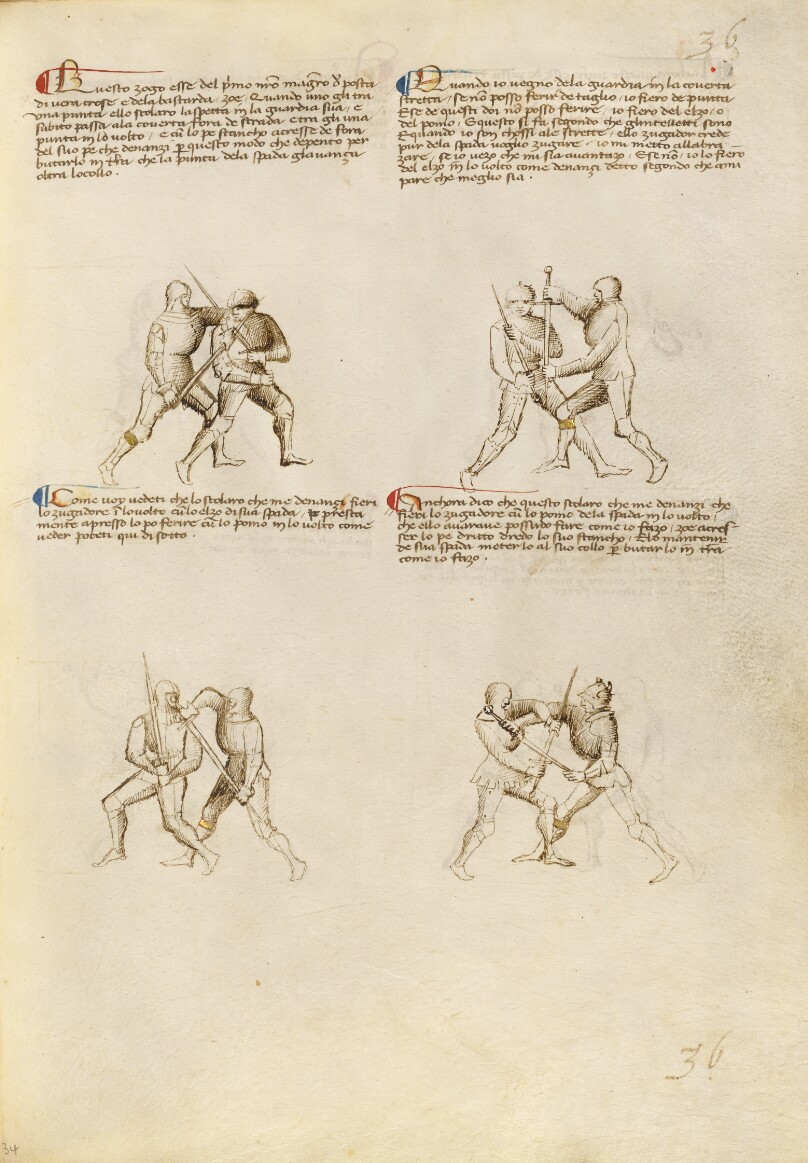 36
Questo zogo esse del p̃mo nr̃o magr̃o d̕ posta
di uera crose e dela bastarda, zoe, Quando uno gli tra
una punta ello scolaro laspetta in la guardia sua, e
subito passa ala couerta fora de strada, e tra gli una
punta in lo uolto, e cũ lo pe stancho acresse de fora
del suo pe che denanzi ꝑ questo modo che depento per
butarlo in tr̃a che la punta dela spada gla uanza
oltra lo collo.
Quando io uegno dela guardia in la couerta
stretta, se nõ posso ferir de taglio, io fiero de punta
E se de questi doi nõ posso ferire, io fiero del elzo, o
del pomo, E questo si fa segondo che gl'intelletti sono
E quando io son chossi ale strette, ello zugador crede
pur dela spada uoglio zugare, io mi metto alla bra
zare, se io uezo che mi sia auantazo, E se nõ, io lo fiero
del elzo in lo uolto come denanzi detto segondo che ami
pare che meglio sia.
Come uoy uedeti che lo scolaro che me denanzi fieri
lo zugadore ĩ lo uolto cũ lo elzo di sua spada, presta
mente apresso lo po ferire cũ lo pomo in lo uolto come
ueder poteti qui di sotto.
Anchora dico che questo scolaro che me denanzi che
fieri lo zugadore cũ lo pomo dela spada in lo uolto,
che ello auaraue possudo fare come io fazo, zoe acres-
ser lo pe dritto dredo lo suo stancho, E lo mantenir
de sua spada meter lo al suo collo ꝑ butar lo in tr̃a
come io fazo.
36
34